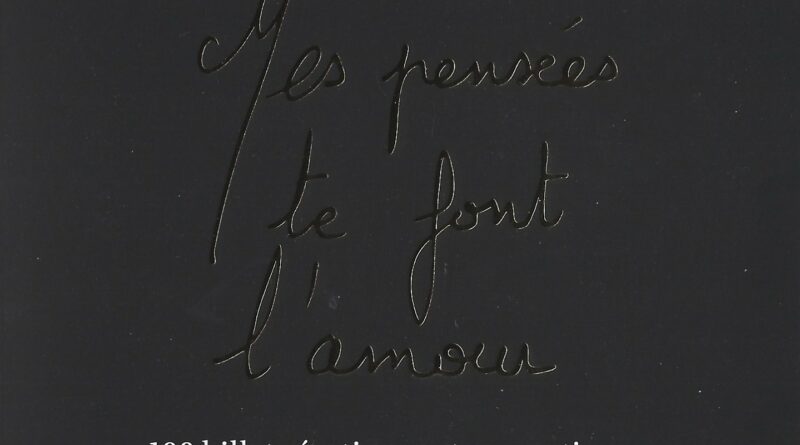 Mes pensées
te font
l'amour